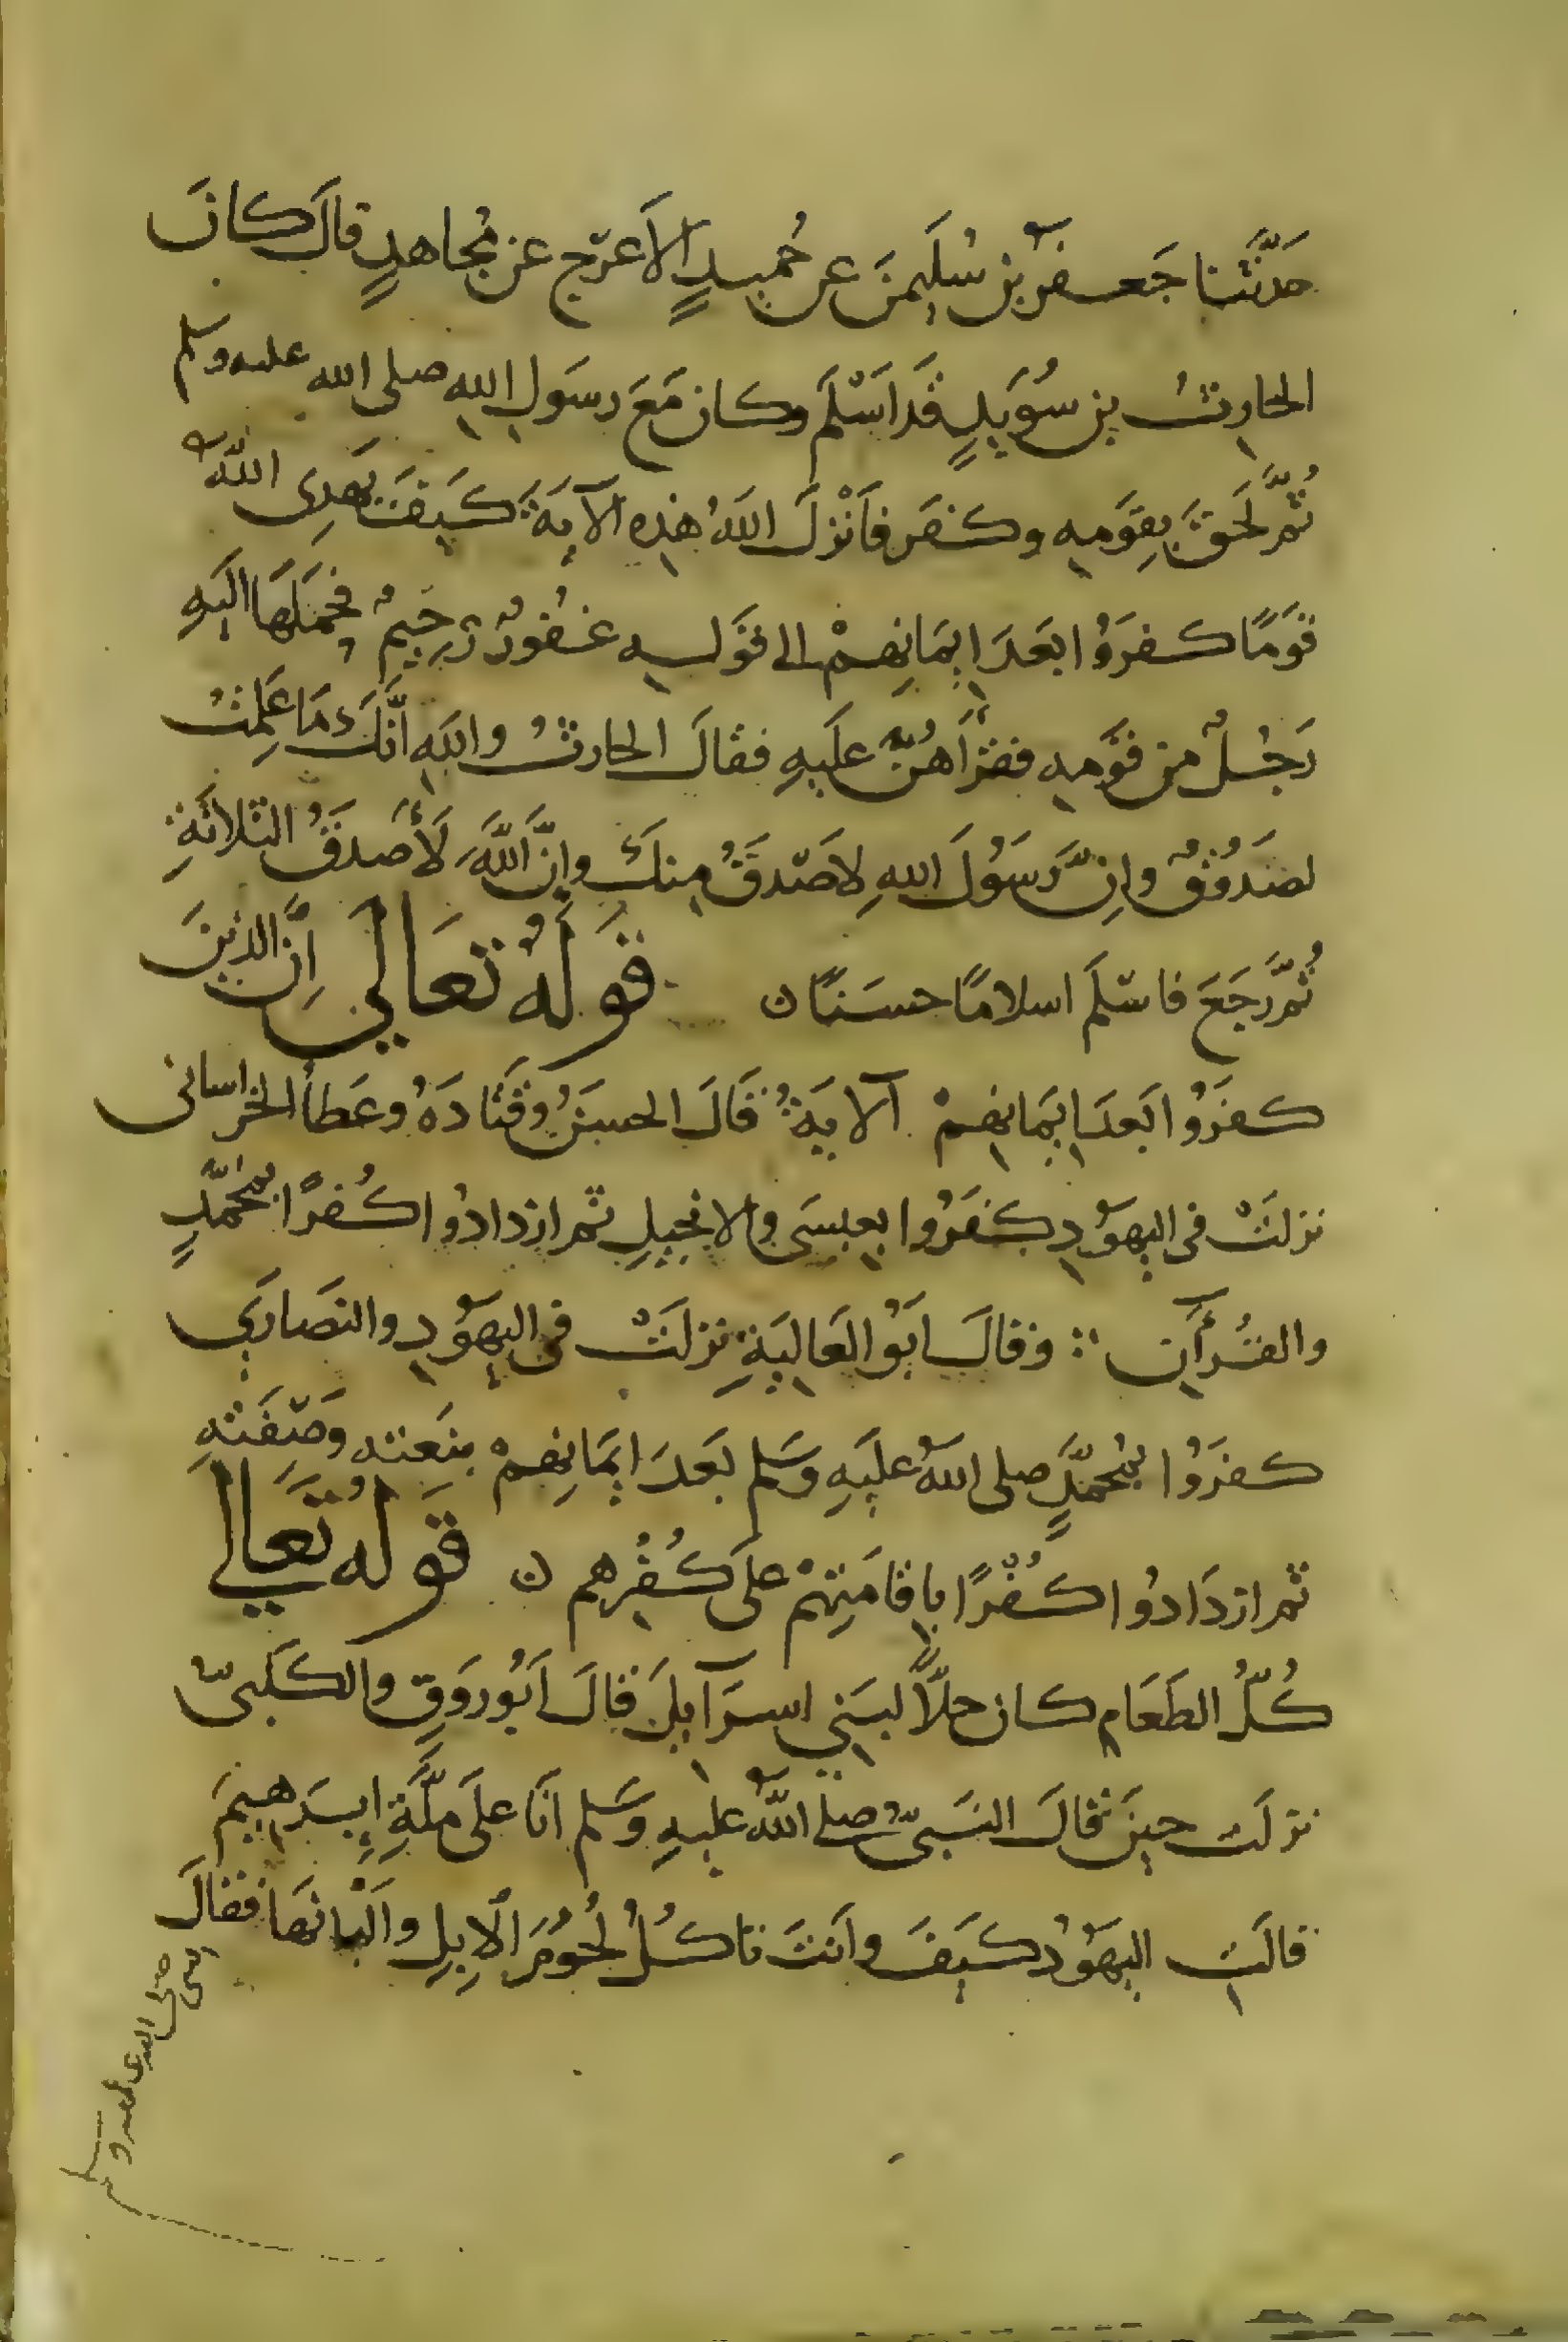 حَدَّثَنا جَعفرُ بن سُلَيمنَ عن حُميدٍ الأعرج عن مُجاهدٍ قالَ كانَ
الحارِثُ بن سُوَيدٍ قَد اَسْلَمَ وكان مَعَ رسَولِ اللهِ صلى الله عليه وسلم
ثُمَّ لَحقَ بِقَومِهِ وكفَر فأَنْزلَ اللهُ هذِه الآيَةَ كَيفَ يَهدِى اللهُ
قَومًا كَفرَوُا بَعَدَ اِيمَانِهِمْ الى قَولِهِ غَفُورٌ رَحِيمٌ فحَمَلَهَا اليَهِ
رَجُلٌ مِن قَومِهِ فقَرأَهُنَّ عليَهِ فقالَ الحارثُ واللهِ اَنَّكَ مَا عَلِمتُ
لصَدُوقٌ وانَّ رَسَوُلَ اللهِ لاصَدقُ مِنكَ وإنَّ اللَّهَ لأَصَدقُ الثلاثَةِ
ثُمَّ رجَعَ فاسْلَمَ اسلامًا حسَنًا ن قَولُهُ تعَالَى اِنَّ الذينَ
كفرَوُا بَعدَ اِيمَانِهِمْ الآيَةُ قَالَ الحسَنُ وقَتَادَةُ وعَطاُ الخراسانى
نزلَتْ فى اليهَوُدِ كفرَوُا بِعِيسَى والانجِيلِ ثم ازدادُوا كُفرًا بمُحمَّدٍ
والقُرآنِ ∴ وقالَ ابَوُ العَالِيَةِ نزلَتْ فى اليهَوُدِ والنصَارَي
كفرَوُا بمُحمَّدٍ صلى اللهُ عليَهِ وسَلم بعَدَ ايمَانِهِمْ بنِعَته وَصِفَتهِ
ثم ازدَادُوا كُفْرًا باِقامَتِهمْ على كُفِرهم ن قَولُهُ تَعَالَى
كُلُّ الطعَامِ كان حِلاًّ لبَنِي اسرَآيلَ قالَ اَبُو رَوقٍ والكلَبىُّ
نزلَت حينَ قالَ النَبىُّ صلى اللهُ عليهِ وسَلم انَا علىَ ملَّةِ إبرَهِيمَ
قالَتِ اليهَوُدُ كيَفَ وانَتَ تاكُلُ لحُوُمَ الاِبِلِ والَبانهَا فقالَ
النبي صلى الله عليه وسلم